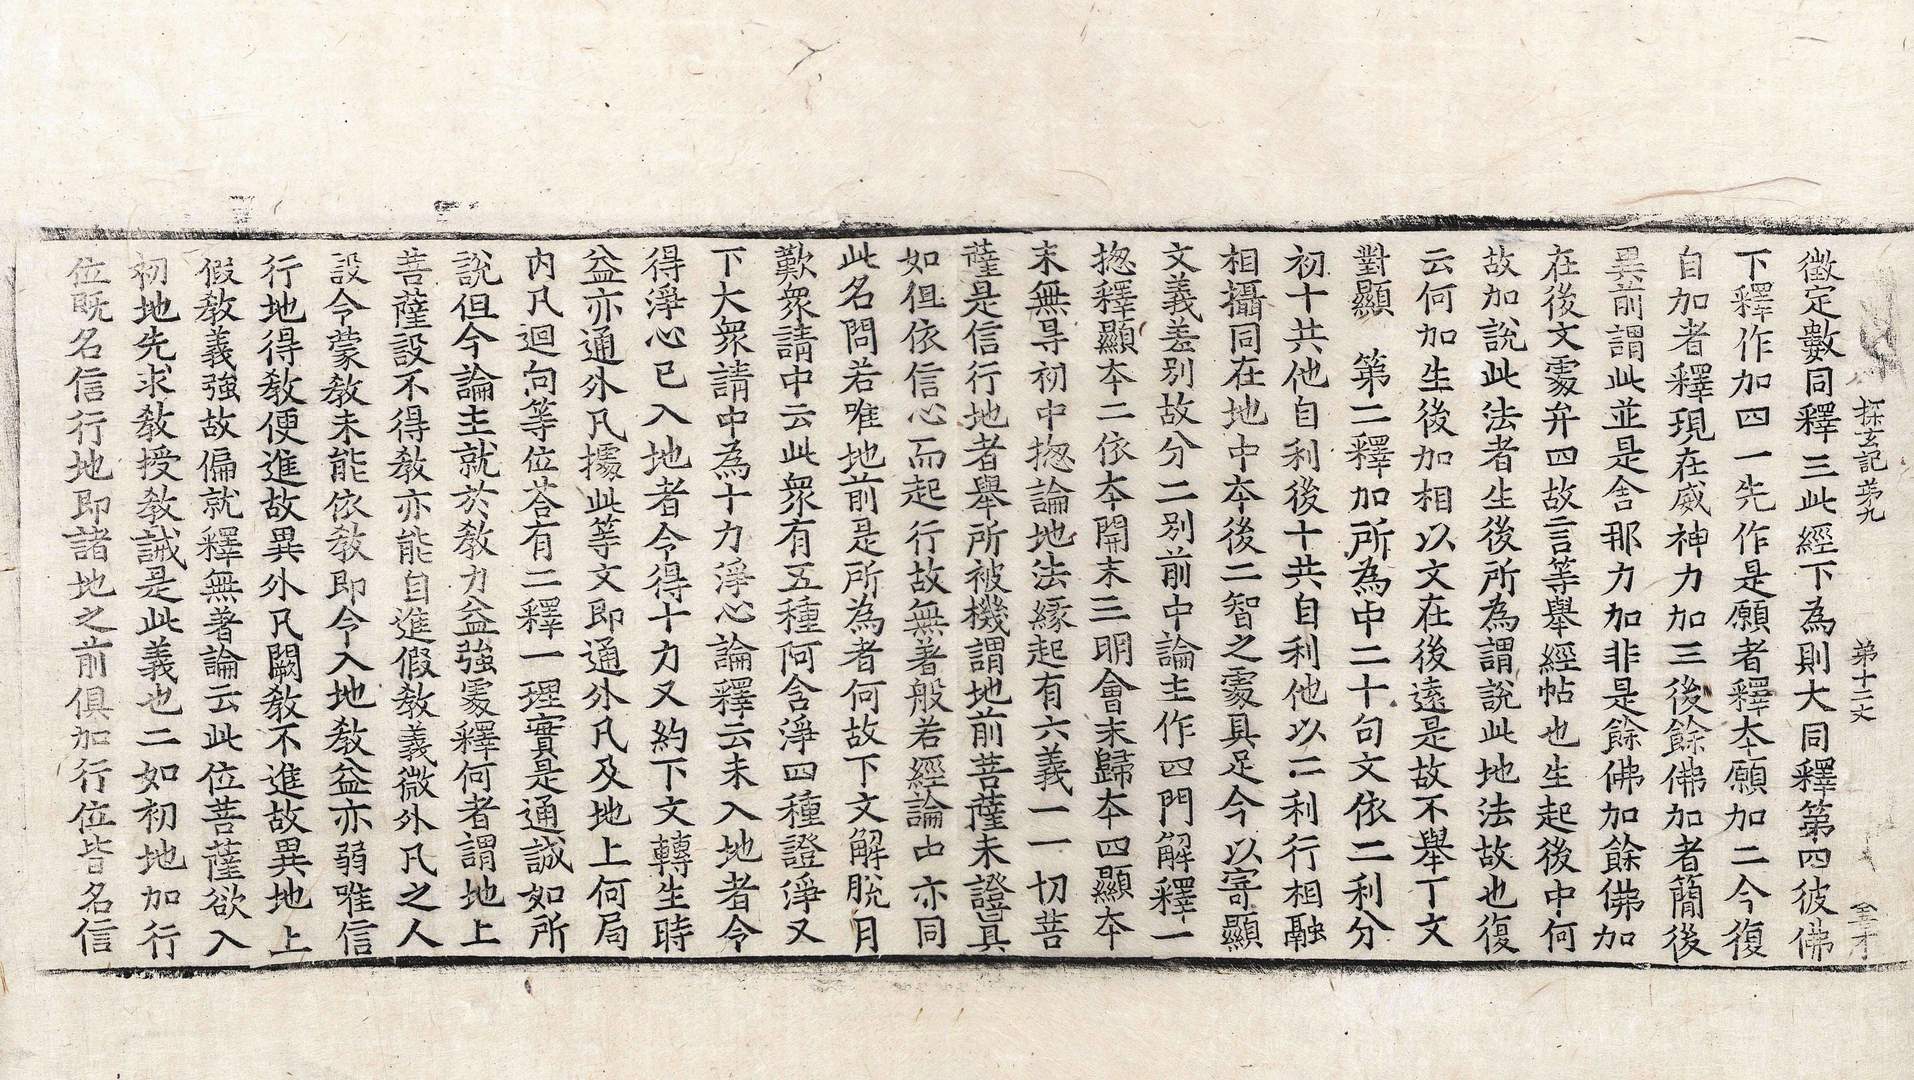 探玄記苐九　苐十二丈　金才
徵定數同釋三此經下為則大同釋第四彼佛
下釋作加四一先作是願者釋本願加二今復
自加者釋現在威神力加三後餘佛加者簡後
異前謂此並是舍那力加非是餘佛加餘佛加
在後文䖏弁四故言等舉經帖也生起後中何
故加說此法者生後所為謂說此地法故也復
云何加生後加相以文在後遠是故不舉丁文
對顯　第二釋加所為中二十句文依二利分
初十共他自利後十共自利他以二利行相融
相攝同在地中本後二智之䖏具足今以寄顯
文義差别故分二别前中論主作四門解釋一
揔釋顯本二依本開末三明會末歸本四顯本
末無㝵初中揔論地法緣起有六義一一切菩
薩是信行地者舉所被機謂地前菩薩未證真
如但依信心而起行故無著般若經論中亦同
此名問若唯地前是所為者何故下文解脫月
歎衆請中云此衆有五種阿含淨四種證淨又
下大衆請中為十力淨心論釋云未入地者令
得淨心已入地者令得十力又約下文轉生時
益亦通外凡㩀此等文即通外凡及地上何局
內凡迴向等位荅有二釋一理實是通誠如所
說但今論主就於教力益強䖏釋何者謂地上
菩薩設不得教亦能自進假教義微外凡之人
設令蒙教未能依教即令入地教益亦弱唯信
行地得教便進故異外凡闕教不進故異地上
假教義強故偏就釋無著論云此位菩薩欲入
初地先求教授教誡是此義也二如初地加行
位旣名信行地即諸地之前俱加行位皆名信